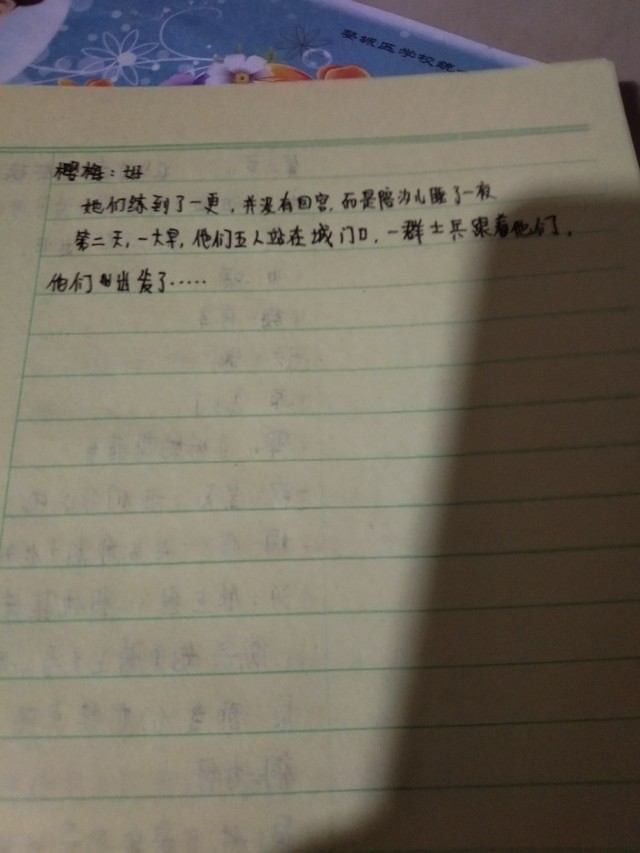 婺城区学校统
樱梅：好
她们练到了一更，并没有回宫，而是陪沩儿睡了一夜
第二天，一大早，他们五人站在城门口，一群士兵跟着他们，
他们出发了……